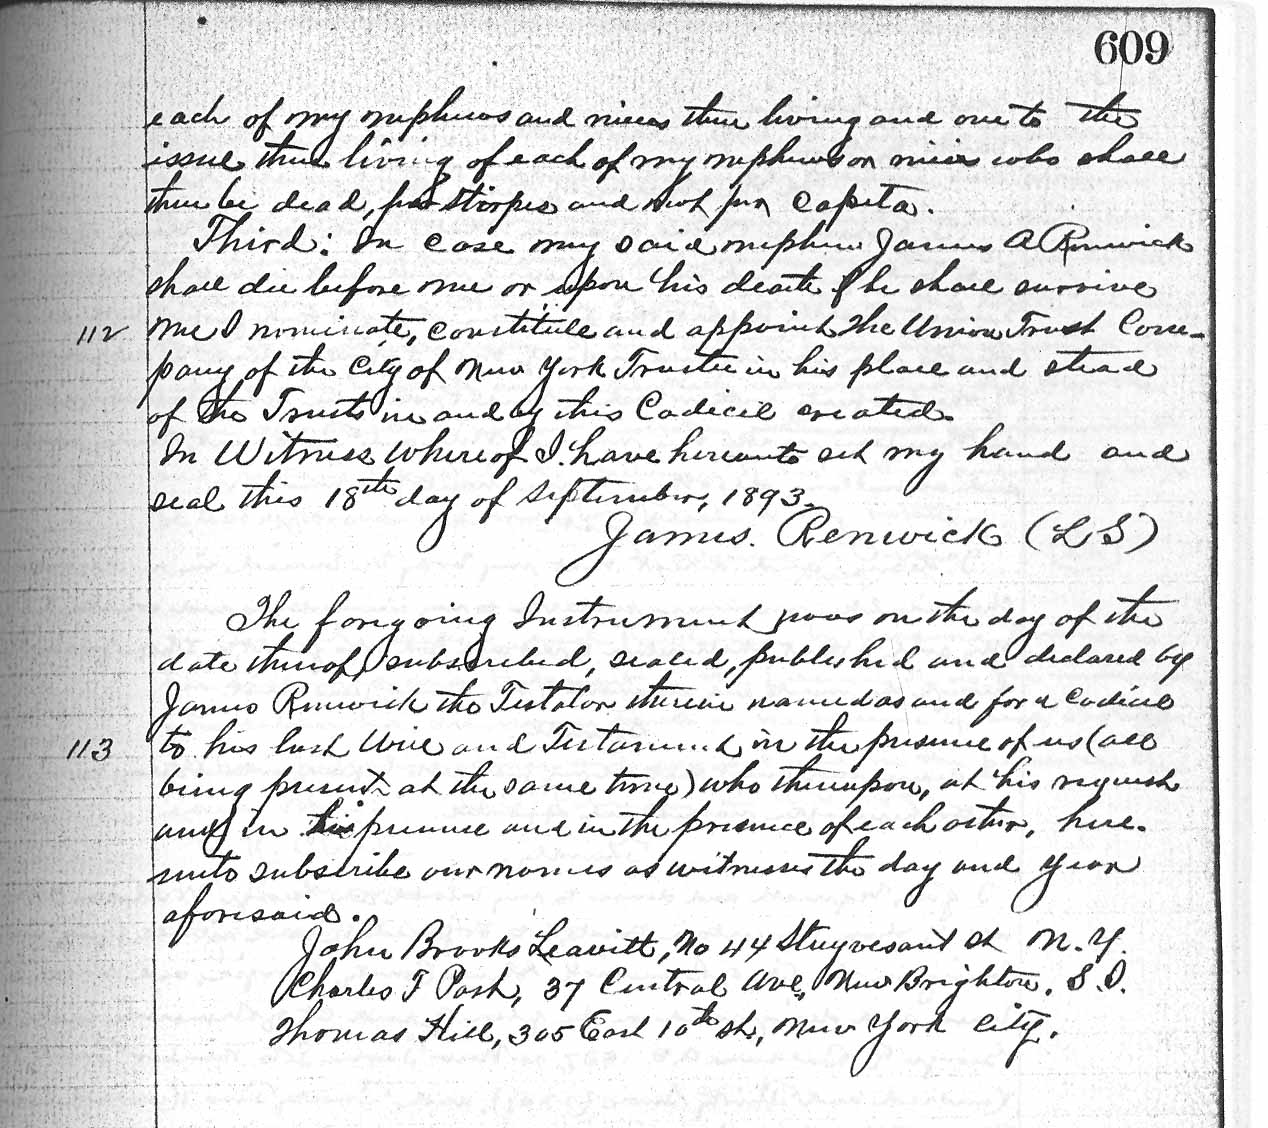 609
each of my nephews and nieces then living and one to the
issue then living of each of my nephews or nieces who shall
then be dead, per stirpes and not per capita.
Third: In case my said nephew James A Renwick
shall die before me or upon his death if he shall survive
112 me I nominate, constitute and appoint the Union Trust Com-
pany of the City of New York Trustee in his place and stead
of the Trusts in and by this Codicil created.
In Witness Whereof I have hereunto set my hand and
seal this 18th day of September, 1893.
James. Renwick (L S)
The foregoing Instrument was on the day of the
date thereof subscribed, sealed, published and declared by
James Renwick the Testator therein named as and for a Codicil
113 to his last Will and Testament in the presence of us (all
being present at the same time) who thereupon, at his request
and in his presence and in the presence of each other, here-
unto subscribe our names as witnesses the day and year
aforesaid.
John Brooks Leavitt, No 44 Stuyvesant St N.Y.
Charles F Post, 37 Central Ave, New Brighton. S.I.
Thomas Hill, 305 East 10th St, New York City.